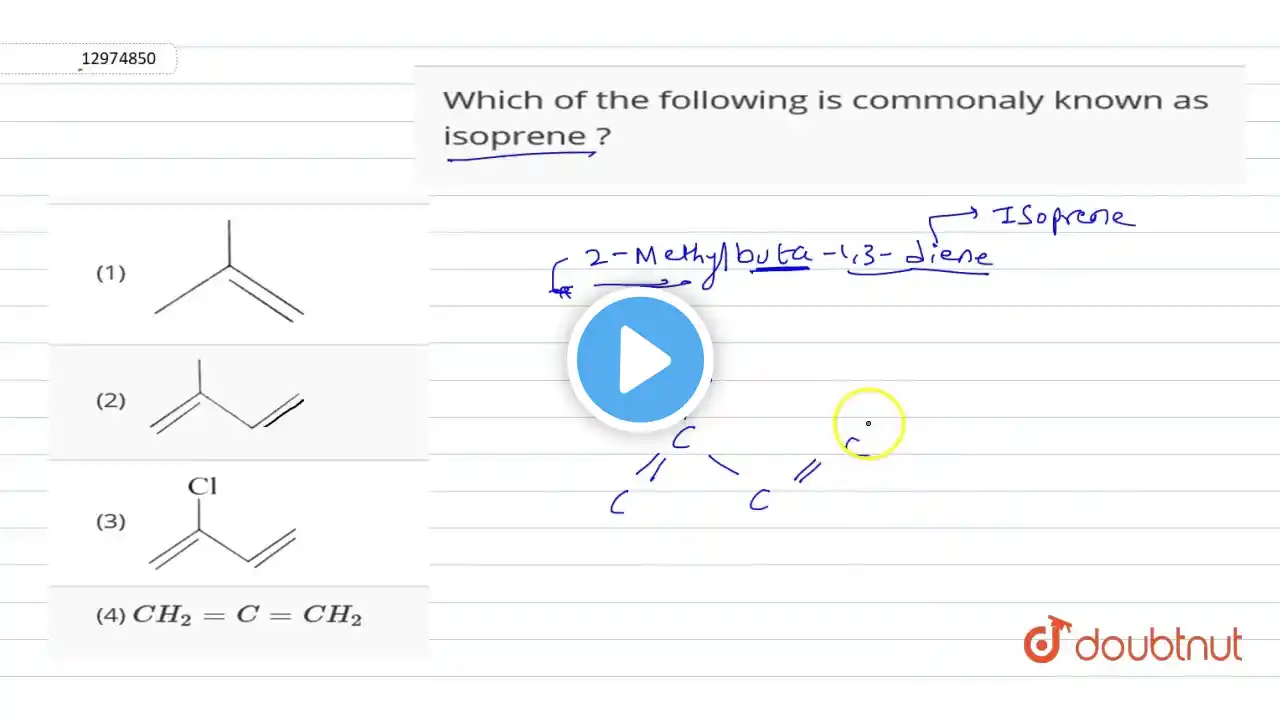 12974850
Which of the following is commonaly known as
isoprene ?
ISoprene
2-Methylbuta-1,3-diene
(1)
(2)
(3)
Cl
(4) CH₂ = C = CH₂
C
C
C
C
doubtnut